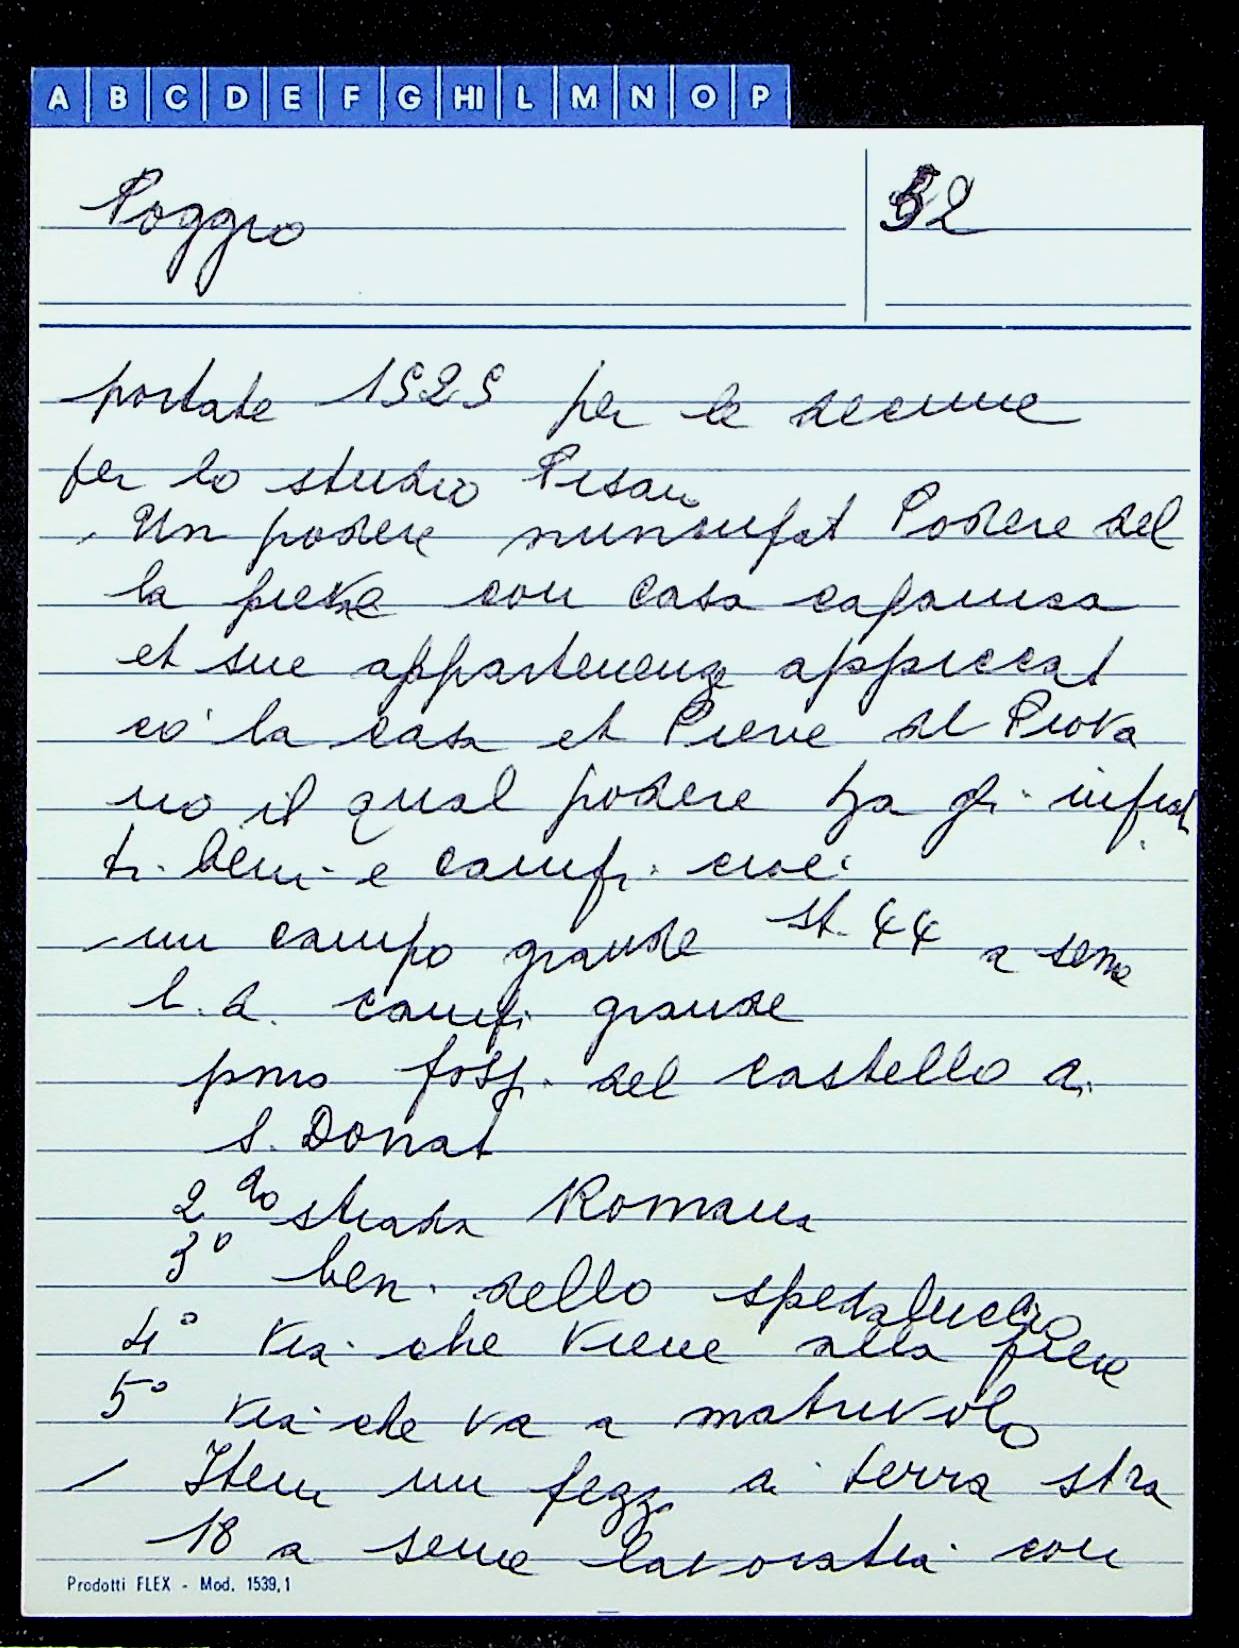 A B C D E F G HI L M N O P
Poggio 52
portate 1525 per le decime
per lo studio Pisan
Un podere nuncupat Podere del
la pieve con casa capanna
et sue appartenenz appiccat
cō la casa et Pieve di Piova
no il qual podere ha gli infrat
ti beni e campi cioè
un campo grande st. 44 a seme
l. d. campi grande
pmo foss. del castello di
S. Donat
2do strada Romana
3° ben. dello spedaluccio
4° via che viene alla pieve
5° via che va a
Item un pezzo di terra stra
18 a seme lavoratia con
Prodotti FLEX - Mod. 1539,1